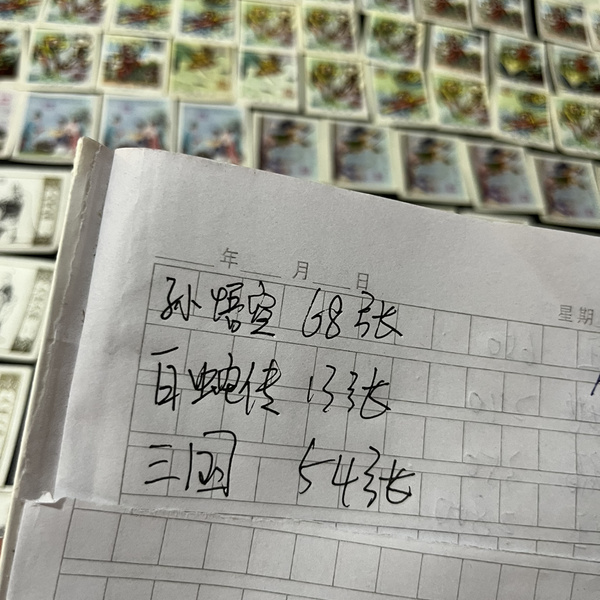 年 月 日
星期
孙悟空 68张
白蛇传 13张
三国 54张